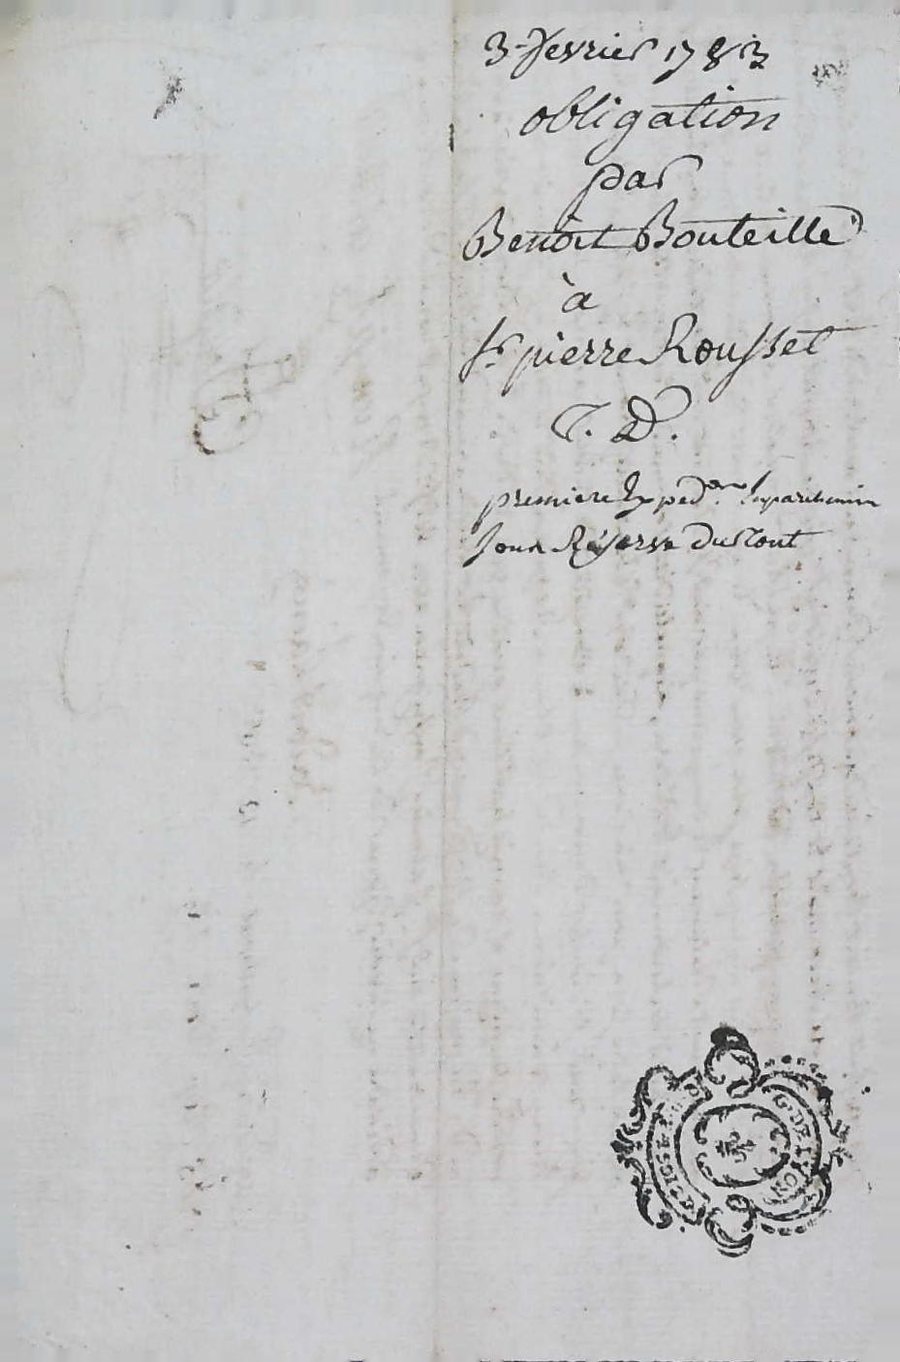 3 fevrier 1783
obligation
par
Benoit Bouteille
à
Sr pierre Rousset
T. D.
premiere Exped.on
sous Reserve du Tout
G. DE LYON